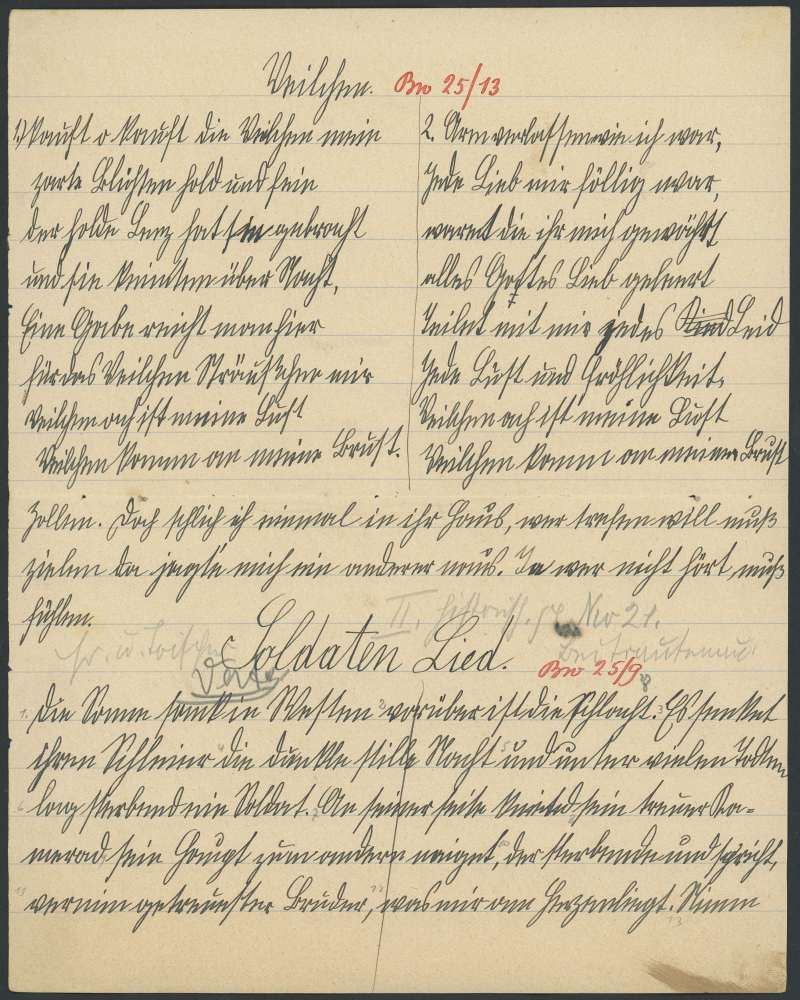 Veilchen. Bw 25/13
1.) Kauft o kauft die Veilchen mein
zarte Blüthen hold und fein
der holde Lenz hat sie gebracht
und sie keimten über Nacht,
Eine Gabe reicht man hier
für das Veilchen Sträußchen mir
Veilchen ach ist meine Lust
Veilchen komm an meine Brust.
2. Arm verlassen wie ich war,
Jede Lieb mir völlig war,
waret die ihr mich gewährt
alles Gottes Lieb gelehrt
Teilet mit mir jedes Leid
Jede Lust und Fröhlichkeit.
Veilchen ach ist meine Lust
Veilchen komm an meine Brust
Zollein. Doch schlich ich einmal in ihr Haus, wer trefen will muß
zielen da jagte mich ein anderer naus. Ja wer nicht hört muß
fühlen.
II. No 21.
Soldaten Lied. Bw 25/9
Die Sonne sank in Westen vorüber ist die Schlacht. Es senket
ihren Schleier die dunkle stille Nacht und unter vielen Todten
lag sterbend ein Soldat. An seiner seite kniet sein treuer Ka-
merad, sein Haupt zum andern neiget, der sterbende und spricht,
vernim getreuester Bruder, was mir am Herzen liegt. Nimm